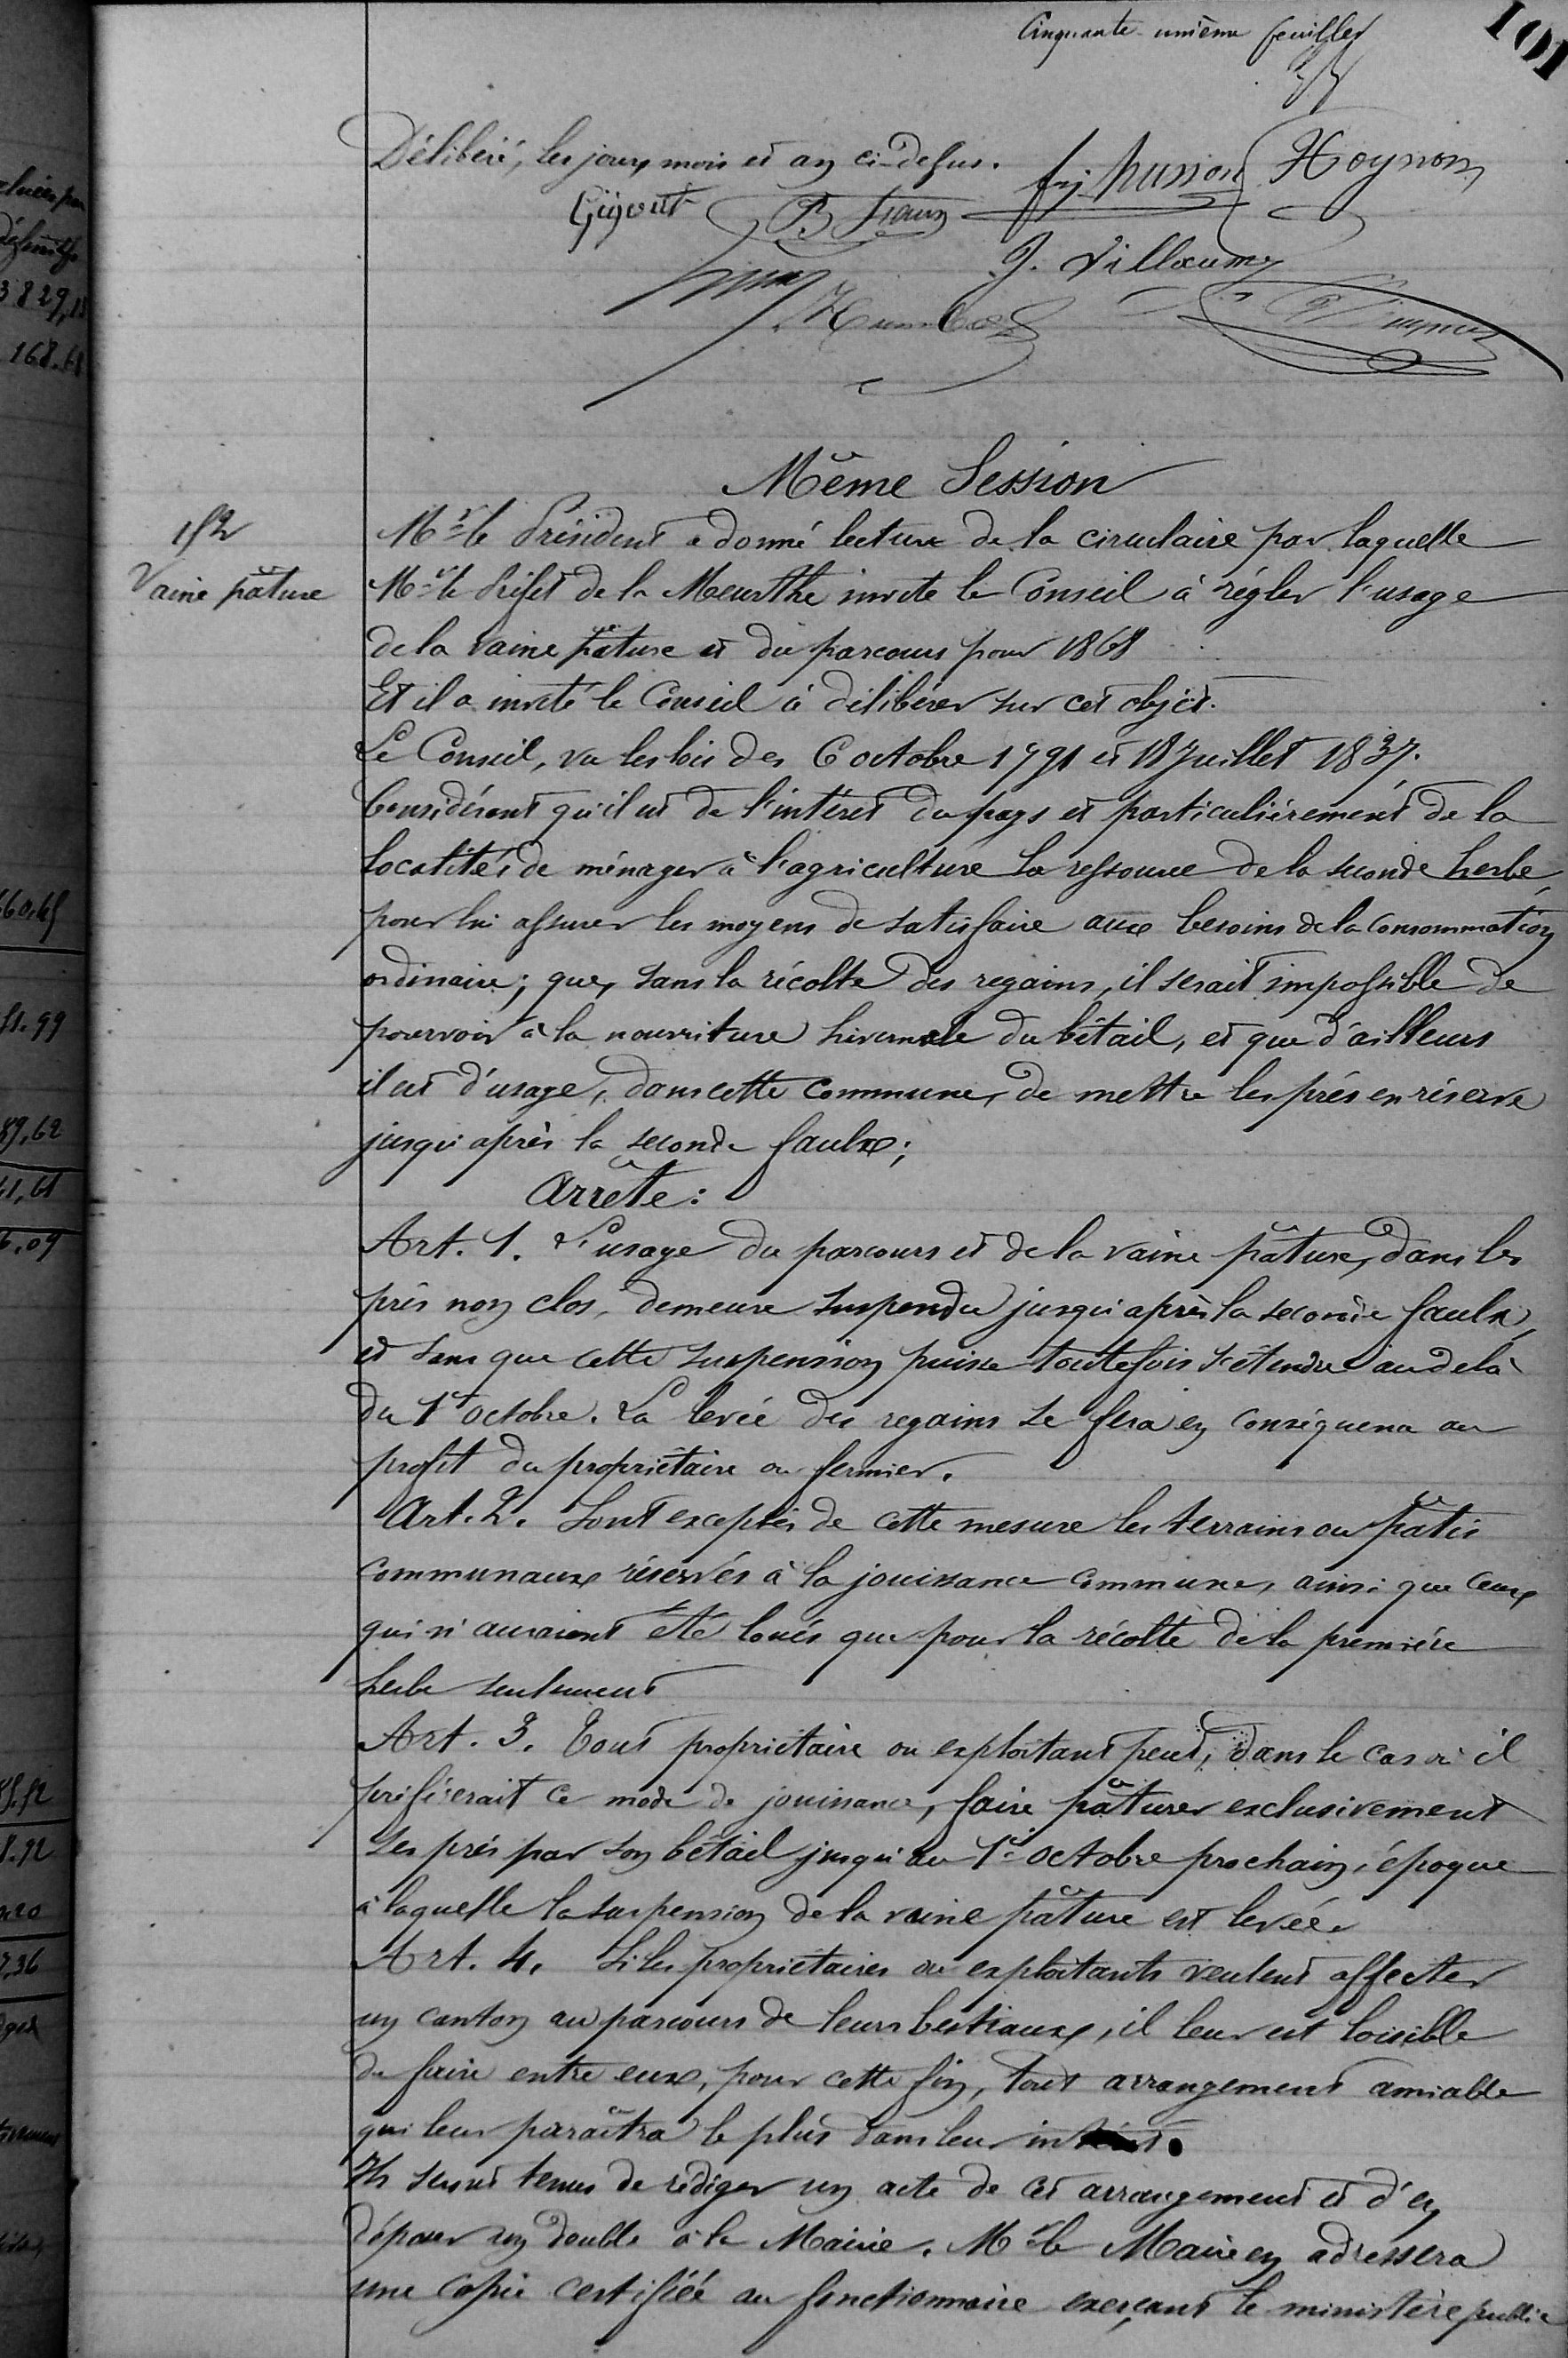 Cinquante unième feuillet
101
Délibéré, les jour, mois et an ci-dessus.
Husson Hoynon
Guyout
J. Villaume
Humbert
Même Session
152
Vaine pâture
Mr le Président a donné lecture de la circulaire par laquelle
Mr le Préfet de la Meurthe invite le Conseil à régler l'usage
de la vaine pâture et du parcours pour 1868
Et il a invité le Conseil à délibérer sur cet objet.
Le Conseil, vu les lois des 6 octobre 1791 et 18 Juillet 1837.
Considérant qu'il est de l'intérêt du pays et particulièrement de la
localités de ménager à l'agriculture la ressource de la seconde herbe,
pour lui assurer les moyens de satisfaire aux besoins de la consommation
ordinaire; que, sans la récolte des regains, il serait impossible de
pourvoir à la nourriture hivernale du bétail, et que d'ailleurs
il est d'usage, dans cette commune, de mettre les prés en réserve
jusqu'après la seconde faulx;
Arrête:
Art. 1. L'usage du parcours et de la vaine pâture, dans les
prés non clos, demeure suspendu jusqu'après la seconde faulx,
et sans que cette suspension puisse toutefois s'étendre au delà
du 1er octobre. La levée des regains se fera en conséquence au
profit du propriétaire ou fermier.
Art. 2. Sont exceptés de cette mesure les terrains ou pâtis
communaux réservés à la jouissance commune, ainsi que ceux
qui n'auraient été loués que pour la récolte de la première
herbe seulement
Art. 3. Tout propriétaire ou exploitant peut, dans le cas où il
préférerait ce mode de jouissance, faire pâturer exclusivement
ses prés par son bétail jusqu'au 1er octobre prochain, époque
à laquelle la suspension de la vaine pâture est levée.
Art. 4. Si les propriétaires ou exploitants veulent affecter
un canton au parcours de leurs bestiaux, il leur est loisible
de faire entre eux, pour cette fin, tout arrangement amiable
qui leur paraîtra le plus dans leur intérêt.
Ils seront tenus de rédiger un acte de cet arrangement et d'en
déposer un double à la Mairie. Mr le Maire en adressera
une copie certifiée au fonctionnaire exerçant le ministère public